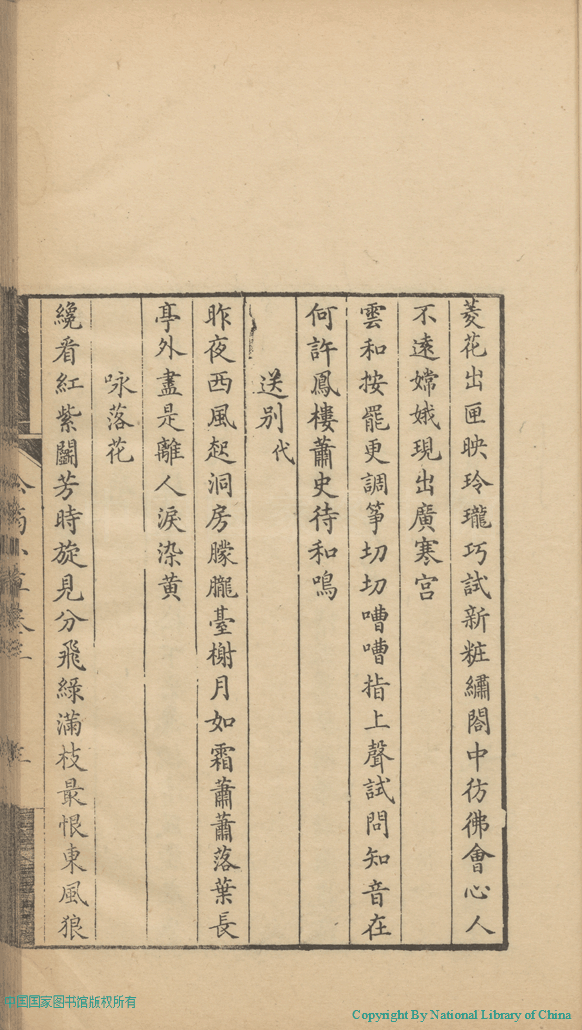 菱花出匣映玲瓏巧試新粧繡閣中彷彿會心人
不遠嫦娥現出廣寒宮
雲和按罷更調箏切切嘈嘈指上聲試問知音在
何許鳳樓蕭史待和鳴
送別代
昨夜西風起洞房朦朧臺榭月如霜蕭蕭落葉長
亭外盡是離人淚染黃
咏落花
纔看紅紫鬭芳時旋見分飛綠滿枝最恨東風狼
中国国家图书馆版权所有
Copyright By National Library of China